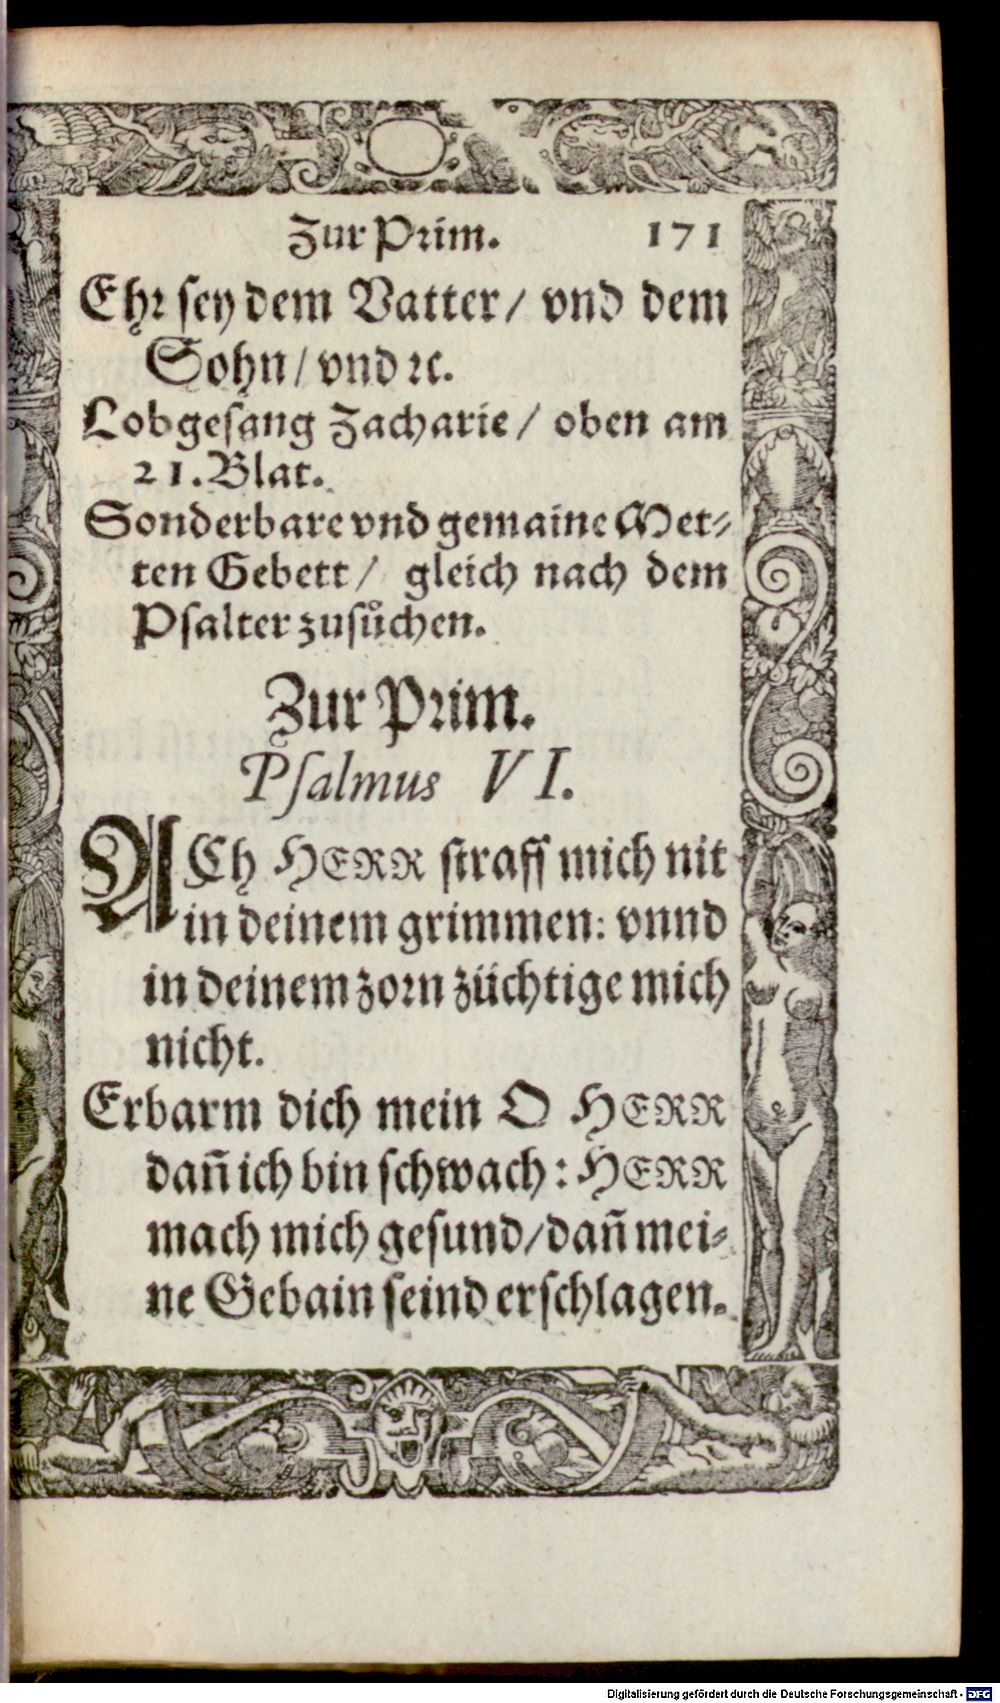 Zur Prim. 171
Ehr sey dem Vatter/ vnd dem
Sohn/ vnd ꝛc.
Lobgesang Zacharie/ oben am
21. Blat.
Sonderbare vnd gemaine Met⸗
ten Gebett/ gleich nach dem
Psalter zusůchen.
Zur Prim.
Psalmus VI.
ACh HERR straff mich nit
in deinem grimmen: vnnd
in deinem zorn züchtige mich
nicht.
Erbarm dich mein O HERR
dañ ich bin schwach: HERR
mach mich gesund/ dañ mei⸗
ne Gebain seind erschlagen.
Digitalisierung gefördert durch die Deutsche Forschungsgemeinschaft - DFG